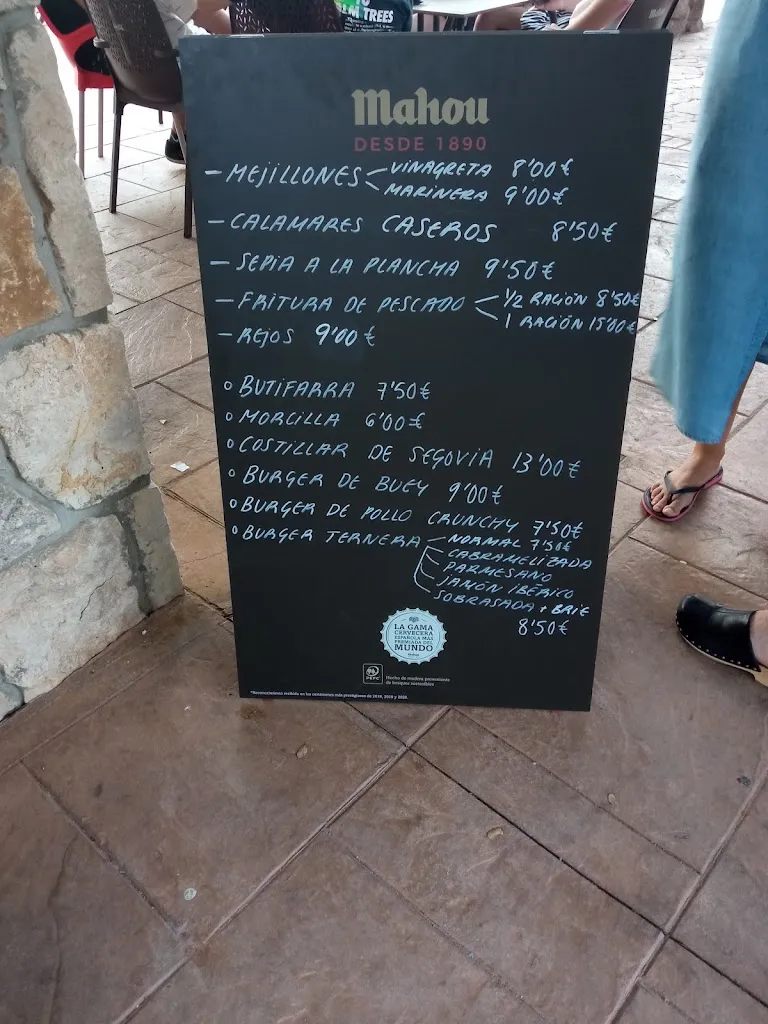 TREES
Mahou
DESDE 1890
- MEJILLONES < VINAGRETA 8'00€
MARINERA 9'00€
- CALAMARES CASEROS 8'50€
- SEPIA A LA PLANCHA 9'50€
- FRITURA DE PESCADO < 1/2 RACIÓN 8'50€
1 RACIÓN 15'00€
- REJOS 9'00€
○ BUTIFARRA 7'50€
○ MORCILLA 6'00€
○ COSTILLAR DE SEGOVIA 13'00€
○ BURGER DE BUEY 9'00€
○ BURGER DE POLLO CRUNCHY 7'50€
○ BURGER TERNERA NORMAL 7'50€
CABRAMELIZADA
PARMESANO
JAMÓN IBÉRICO
SOBRASADA + BRIE
8'50€
LA GAMA
CERVECERA
ESPAÑOLA MÁS
PREMIADA DEL
MUNDO
PEFC
Hecho de madera proveniente
de bosques sostenibles